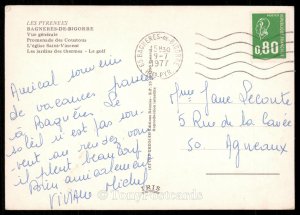 LES PYRENEES
BAGNERES-DE-BIGORRE
Vue générale
Promenade des Coustous
L'église Saint-Vincent
Les jardins des thermes - Le golf
BAGNERES-DE-BIGORRE
19-7
1977
0,80
Amical souvenir
de vacances passées
à Bagnères. Le
soleil n'est pas souvent
au rendez vous
il pleut beaucoup
Bien amicalement
Michel
Mme Jane Leconte
5 Rue de la Cavée
50 Agneaux
IRIS
© TonyPostcards